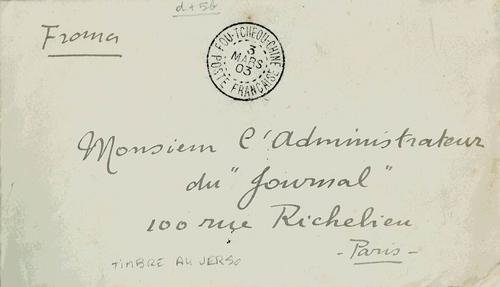 d + 56
Froma
FOU-TCHEOU-CHINE
3
MARS
03
POSTE FRANÇAISE
Monsieur l'Administrateur
du "Journal"
100 rue Richelieu
- Paris -
TIMBRE AU VERSO